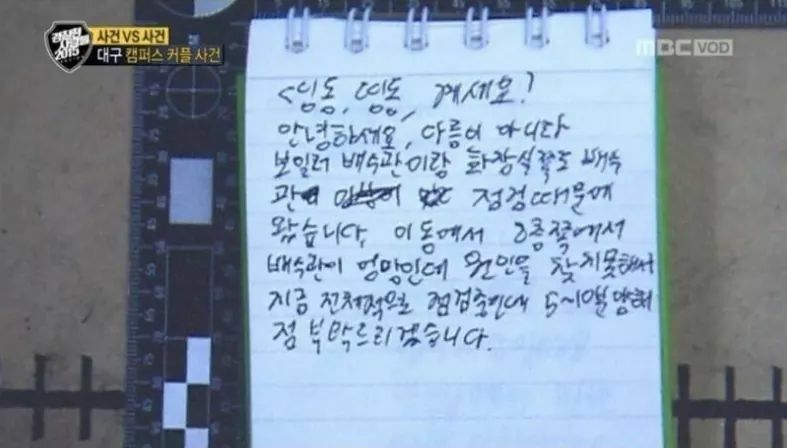 경찰청 사람들 2015
사건 VS 사건
대구 캠퍼스 커플 사건
MBC VOD
<띵동, 띵동, 계세요?
안녕하세요, 다름이 아니라
보일러 배수관이랑 화장실쪽도 배수
관 점검때문에
왔습니다. 이동에서 8층쪽에서
배수관이 엉망인데 원인을 찾지못해서
지금 전체적으로 점검중인데 5~10분 양해
점 부탁드리겠습니다.